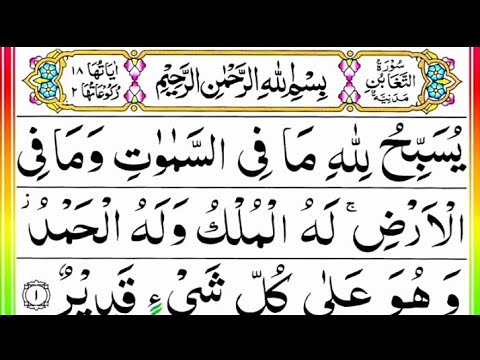 سُوْرَةُ التَّغَابُنِ مَدَنِيَّةٌ
بِسْمِ اللّٰهِ الرَّحْمٰنِ الرَّحِيْمِ
اٰيَاتُهَا ١٨
رُكُوْعَاتُهَا ٢
يُسَبِّحُ لِلّٰهِ مَا فِى السَّمٰوٰتِ وَمَا فِى
الْاَرْضِ ۚ لَهُ الْمُلْكُ وَلَهُ الْحَمْدُ ؗ
وَهُوَ عَلٰى كُلِّ شَىْءٍ قَدِيْرٌ ١